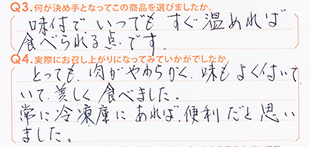 Q3.何が決め手となってこの商品を選びましたか。
味付で いつでも すぐ温めれば
食べられる点です。
Q4.実際にお召し上がりになってみていかがでしたか。
とっても、肉がやわらかく、味もよく付いて
いて、美しく食べました。
常に冷凍庫にあれば、便利だと思い
ました。